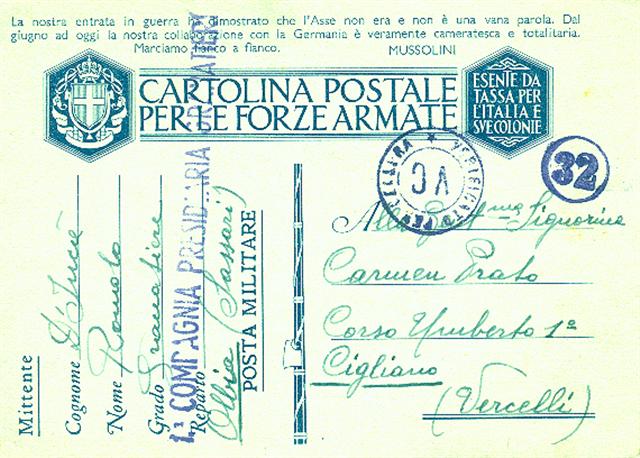 La nostra entrata in guerra ha dimostrato che l'Asse non era e non è una vana parola. Dal
giugno ad oggi la nostra collaborazione con la Germania è veramente cameratesca e totalitaria.
Marciamo fianco a fianco. MUSSOLINI
CARTOLINA POSTALE
PER LE FORZE ARMATE
ESENTE DA
TASSA PER
L'ITALIA E
SVE COLONIE
VERIFICATO PER
32
Alla Gent.ma Signorina
Carmen Prato
Corso Umberto 1º
Cigliano
(Vercelli)
Mittente
Cognome D'Lucie
Nome Romolo
Grado Granatiere
Reparto
1ª COMPAGNIA PRESIDIARIA GRANATIERI
Olbia (Sassari)
POSTA MILITARE